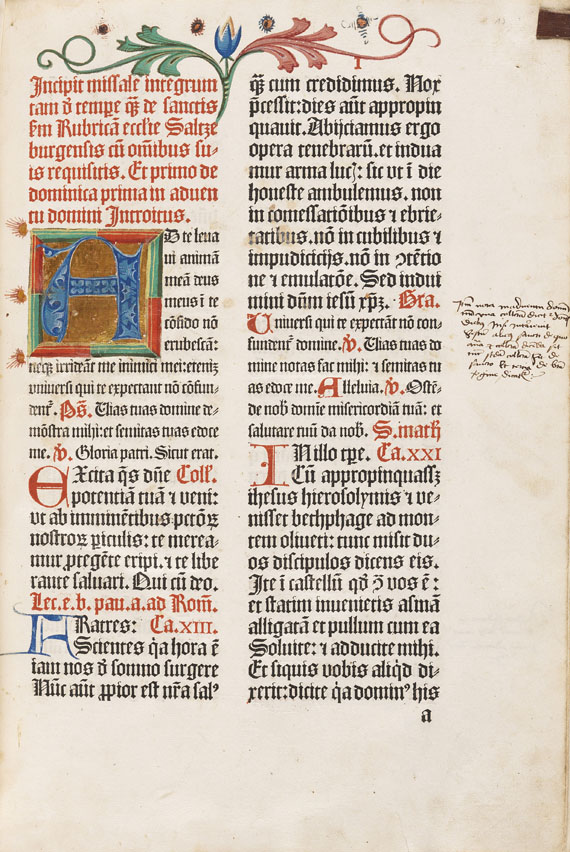 I
Incipit missale integrum
tam ð tempe q̃ de sanctis
ẜm Rubricã eccl'ie Saltze
burgensis cũ om̃ibus su-
is requisitis. Et primo de
dominica prima in aduen
tu domini Introitus.
AD te leua
ui animã
meã deus
meus ĩ te
cõfido nõ
erubescã:
neq̃ irrideãt me inimici mei: etenĩ
vniuersi qui te expectant nõ cõfun-
dent᷑. Ps̃. Uias tuas domine de-
mõstra mihi: et semitas tuas edoce
me. V̓. Gloria patri. Sicut erat.
EXcita q̃s dñe Coll'.
potentiam tuã ⁊ veni:
vt ab imminẽtibus pctõꝝ
nostroꝝ ꝑiculis: te merea-
mur ꝓtegẽte eripi. ⁊ te libe
rante saluari. Qui cũ deo.
Lec. e. b. pau. a. ad Rom̃.
FRatres: Ca. XIII.
Scientes q̇a hora ẽ
iam nos ð somno surgere
Nũc aũt ꝓpior est nr̃a salꝰ
q̃ cum credidimus. Nox
p̃cessit: dies aũt appropin
quauit. Abijciamus ergo
opera tenebrarũ. et indua
mur arma lucꝭ: sic vt ĩ die
honeste ambulemus. non
in comessatiõibus ⁊ ebrie-
tatibus. nõ in cubilibus ⁊
impudicicijs. nõ in ↄtẽtio
ne ⁊ emulatõe. Sed indui
mini dñm iesũ xp̃ꝫ. Gra.
Uniuersi qui te expectãt nõ con-
fundent᷑ domine. V̓. Uias tuas do
mine notas fac mihi: ⁊ semitas tu
as edoce me. Alleluia. V̓. Ostẽ-
de nob̓ domine misericordiã tuã: et
salutare tuũ da nob̓. S. math
IN illo tꝑe. Ca. XXI
Cũ appropinquassꝫ
ihesus hierosolymis ⁊ ve-
nisset bethphage ad mon-
tem oliueti: tunc misit du-
os discipulos dicens eis.
Ite ĩ castellũ qð ↄ̃ vos ẽ:
et statim inuenietis asinã
alligatã et pullum cum ea
Soluite: ⁊ adducite mihi.
Et siquis vobis aliq̇d di-
xerit: dicite q̇a dominꝰ his
a